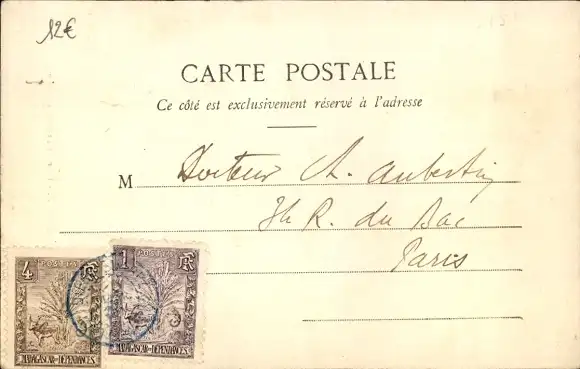 12€
CARTE POSTALE
Ce côté est exclusivement réservé à l'adresse
M Docteur Ch. Aubertin
R. du Bac
Paris
4 POSTES RF
1 POSTES RF
MADAGASCAR-DÉPENDANCES
MADAGASCAR-DÉPENDANCES